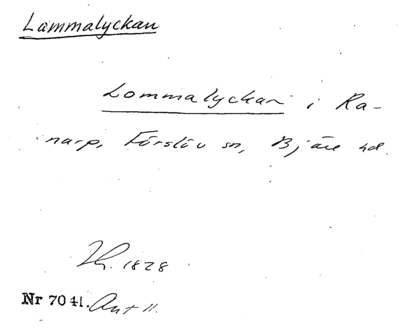 Lammalyckan
Lommalyckan i Ra-
narp, Förslöv sn, Bjäre hd.
1828
Nr 7041. Ant 11.